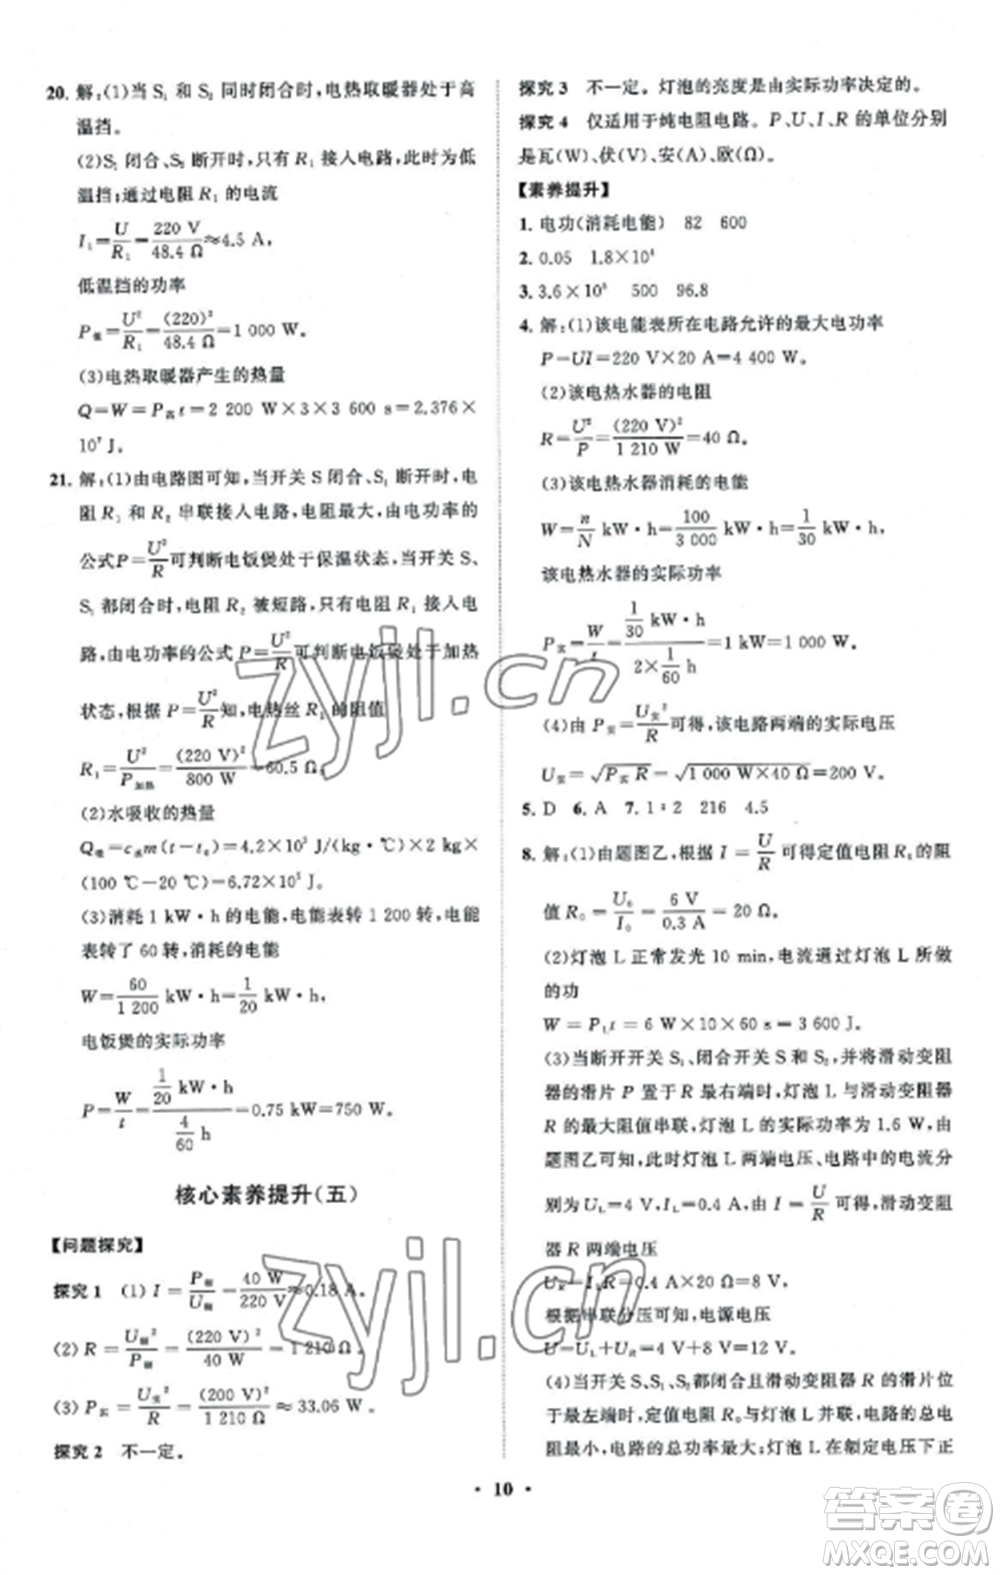 20. 解:(1)当 S₁ 和 S₂ 同时闭合时,电热取暖器处于高
温挡。
(2)S₁ 闭合、S₂ 断开时,只有 R₁ 接入电路,此时为低
温挡;通过电阻 R₁ 的电流
I₁=U/R₁=220 V/48.4 Ω≈4.5 A,
低温挡的功率
P低=U²/R₁=(220)²/48.4 Ω=1 000 W。
(3)电热取暖器产生的热量
Q=W=P高t=2 200 W×3×3 600 s=2.376×
10⁷ J。
21. 解:(1)由电路图可知,当开关 S 闭合、S₁ 断开时,电
阻 R₁ 和 R₂ 串联接入电路,电阻最大,由电功率的
公式 P=U²/R 可判断电饭煲处于保温状态,当开关 S、
S₁ 都闭合时,电阻 R₂ 被短路,只有电阻 R₁ 接入电
路,由电功率的公式 P=U²/R 可判断电饭煲处于加热
状态,根据 P=U²/R 知,电热丝 R₁ 的阻值
R₁=U²/P加热=(220 V)²/800 W=60.5 Ω;
(2)水吸收的热量
Q吸=c水m(t-t₀)=4.2×10³ J/(kg·℃)×2 kg×
(100 ℃-20 ℃)=6.72×10⁵ J。
(3)消耗 1 kW·h 的电能,电能表转 1 200 转,电能
表转了 60 转,消耗的电能
W=60/1 200 kW·h=1/20 kW·h,
电饭煲的实际功率
P=W/t=(1/20 kW·h)/(4/60 h)=0.75 kW=750 W。
核心素养提升(五)
【问题探究】
探究 1 (1) I=P额/U额=40 W/220 V≈0.18 A。
(2) R=U额²/P额=(220 V)²/40 W=1 210 Ω。
(3) P实=U实²/R=(200 V)²/1 210 Ω≈33.06 W。
探究 2 不一定。
探究 3 不一定。灯泡的亮度是由实际功率决定的。
探究 4 仅适用于纯电阻电路。P、U、I、R 的单位分别
是瓦(W)、伏(V)、安(A)、欧(Ω)。
【素养提升】
1. 电功(消耗电能) 82 600
2. 0.05 1.8×10⁴
3. 3.6×10⁵ 500 96.8
4. 解:(1)该电能表所在电路允许的最大电功率
P=UI=220 V×20 A=4 400 W。
(2)该电热水器的电阻
R=U²/P=(220 V)²/1 210 W=40 Ω。
(3)该电热水器消耗的电能
W=n/N kW·h=100/3 000 kW·h=1/30 kW·h,
该电热水器的实际功率
P实=W/t=(1/30 kW·h)/(2×1/60 h)=1 kW=1 000 W。
(4)由 P实=U实²/R 可得,该电路两端的实际电压
U实=√(P实R)=√(1 000 W×40 Ω)=200 V。
5. D 6. A 7. 1∶2 216 4.5
8. 解:(1)由题图乙,根据 I=U/R 可得定值电阻 R₀ 的阻
值 R₀=U₀/I₀=6 V/0.3 A=20 Ω。
(2)灯泡 L 正常发光 10 min,电流通过灯泡 L 所做
的功
W=P₁t=6 W×10×60 s=3 600 J。
(3)当断开开关 S₁、闭合开关 S 和 S₂,并将滑动变阻
器的滑片 P 置于 R 最右端时,灯泡 L 与滑动变阻器
R 的最大阻值串联,灯泡 L 的实际功率为 1.6 W,由
题图乙可知,此时灯泡 L 两端电压、电路中的电流分
别为 U_L=4 V,I_L=0.4 A,由 I=U/R 可得,滑动变阻
器 R 两端电压
U_R=I_L R=0.4 A×20 Ω=8 V。
根据串联分压可知,电源电压
U=U_L+U_R=4 V+8 V=12 V。
(4)当开关 S、S₁、S₂都闭合且滑动变阻器 R 的滑片在
最左端时,定值电阻 R₀与灯泡 L 并联,电路的总电
阻最小,电路的总功率最大;灯泡 L 在额定电压下正
· 10 ·
zyjl.cn
zyjl.cn
答案圈
MXQE.COM